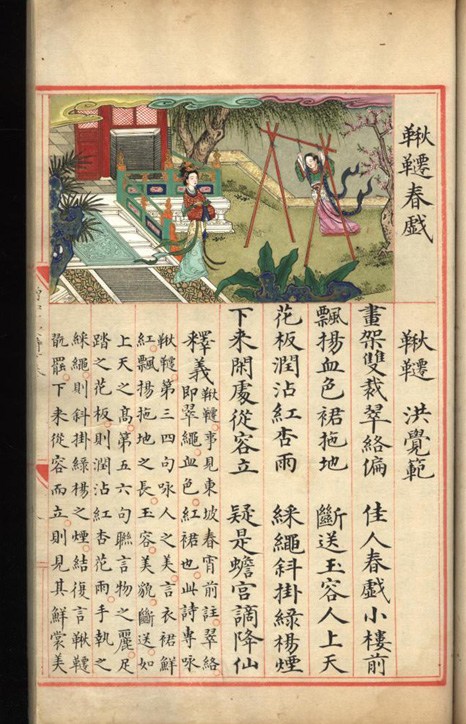 鞦韆春戯
鞦韆 洪覺範
畫架雙裁翠絡偏 佳人春戯小樓前
飄揚血色裙拖地 斷送玉容人上天
花板潤沾紅杏雨 綵繩斜掛綠楊煙
下來閑處從容立 疑是蟾宮謫降仙
釋義 鞦韆事見東坡春宵前註翠絡
即翠繩血色紅裙也此詩專咏
鞦韆第三四句咏人之美言衣裙鮮
紅飄揚拖地之長玉容美貌斷送如
上天之高第五六句聯言物之麗足
踏之花板則潤沾紅杏花雨手執之
綵繩則斜掛綠楊之煙結復言鞦韆
翫罷下來從容而立則見其鮮裳美